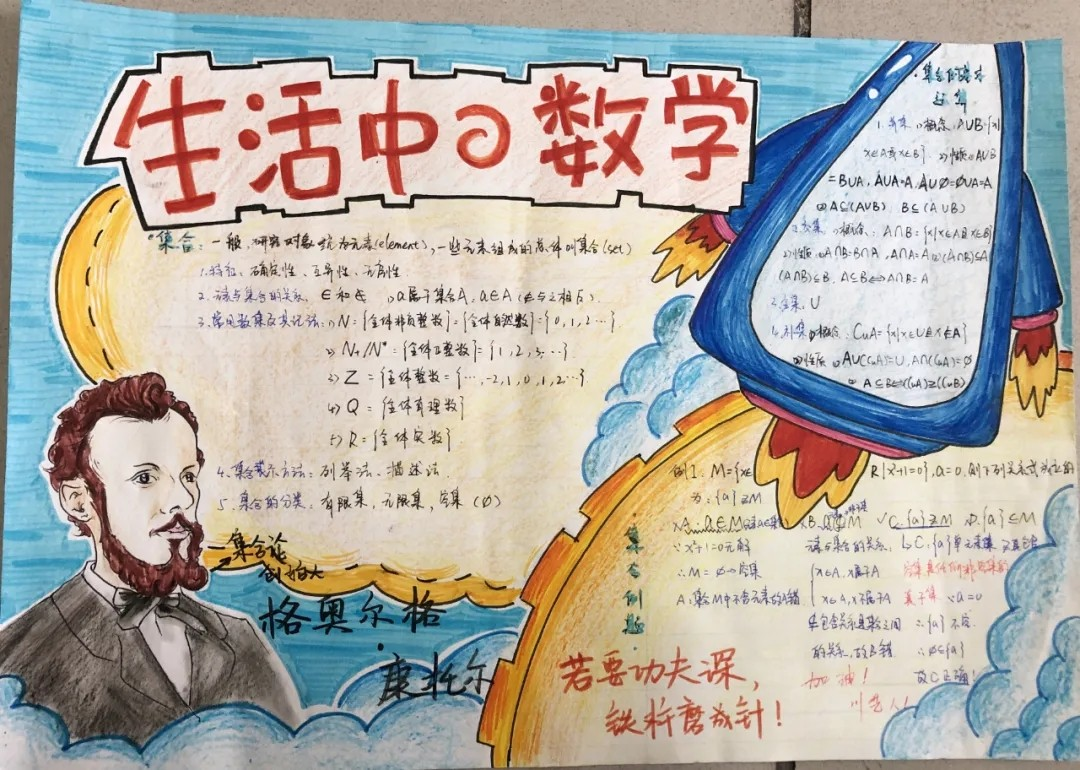 生活中の数学
集合：一般，研究对象统称为元素(element)，一些元素组成的总体叫集合(set)
1.特征：确定性、互异性、无序性
2.元素与集合的关系，∈和∉ 1)a属于集合A，a∈A（∉与之相反）
3.常见数集及其记法：1)N={全体非负整数}={全体自然数}={0,1,2…}
2)N₊/N*={全体正整数}={1,2,3…}
3)Z={全体整数={…,-2,1,0,1,2…}
4)Q={全体有理数}
5)R={全体实数}
4.集合表示方法：列举法、描述法
5.集合的分类：有限集，无限集，空集（∅）
集合论
创始人
格奥尔格
·
康托尔
集合的基本
1.并集 1)概念：A∪B={x|
x∈A或x∈B} 2)性质 A∪B
=B∪A，A∪A=A，A∪∅=∅∪A=A
A⊆(A∪B)，B⊆(A∪B)
2.交集 1)概念：A∩B={x|x∈A且x∈B}
2)性质 A∩B=B∩A，A∩A=A (A∩B)⊆A
(A∩B)⊆B，A⊆B⇔A∩B=A
3.全集，U
4.补集 概念：CuA={x|x∈U且x∉A}
性质 A∪(CuA)=U，A∩(CuA)=∅
A⊆B⇔(CuA)⊇(CuB)
集合例题
例1：M={x∈R|x²+1=0}，a=0，则下列关系式成立的
为：{a}⊋M
A：a∈M B. M ✓C.{a}⊋M D.{a}⊆M
∵x²+1=0无解
∴M=∅→空集
A：集合M中不含元素故A错
元素与集合的关系
{x∈A，x属于A
x∉A，x不属于A
的关系，故B错
C，{a}单元素集
真子集 ∵a=0
∴{a}不空
∴∅⊊{a}
故C正确！
若要功夫深，
铁杵磨成针！
加油！